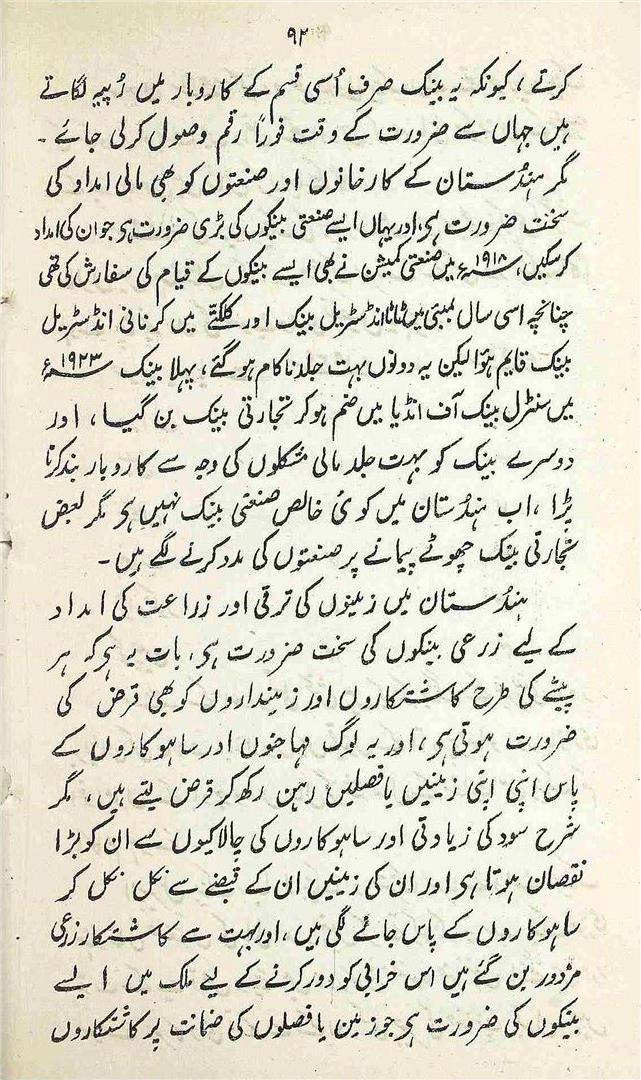 ۹۲
کرتے، کیونکہ یہ بینک صرف اُسی قسم کے کاروبار میں رُپیہ لگاتے
ہیں جہاں سے ضرورت کے وقت فوراً رقم وصول کرلی جائے۔
مگر ہندُستان کے کارخانوں اور صنعتوں کو بھی مالی امداد کی
سخت ضرورت ہی، اور یہاں ایسے صنعتی بینکوں کی بڑی ضرورت ہی جو ان کی امداد
کرسکیں، ۱۹۱۸ء میں صنعتی کمیشن نے بھی ایسے بینکوں کے قیام کی سفارش کی تھی
چنانچہ اسی سال بمبئی میں ٹاٹا انڈسٹریل بینک اور کلکتّے میں کرنانی انڈسٹریل
بینک قایم ہؤا لیکن یہ دونوں بہت جلد ناکام ہوگئے، پہلا بینک ۱۹۲۳ء
میں سنٹرل بینک آف انڈیا میں ضم ہوکر تجارتی بینک بن گیا، اور
دوسرے بینک کو بہت جلد مالی مشکلوں کی وجہ سے کاروبار بند کرنا
پڑا، اب ہندُستان میں کوئ خالص صنعتی بینک نہیں ہی مگر بعض
تجارتی بینک چھوٹے پیمانے پر صنعتوں کی مدد کرنے لگے ہیں۔
ہندُستان میں زمینوں کی ترقی اور زراعت کی امداد
کے لیے زرعی بینکوں کی سخت ضرورت ہی، بات یہ ہی کہ ہر
پیشے کی طرح کاشتکاروں اور زمینداروں کو بھی قرض کی
ضرورت ہوتی ہی، اور یہ لوگ مہاجنوں اور ساہوکاروں کے
پاس اپنی اپنی زمینیں یا فصلیں رہن رکھ کر قرض لیتے ہیں، مگر
شرح سود کی زیادتی اور ساہوکاروں کی چالاکیوں سے ان کو بڑا
نقصان ہوتا ہی اور ان کی زمینیں ان کے قبضے سے نکل نکل کر
ساہوکاروں کے پاس جانے لگی ہیں، اور بہت سے کاشتکار زرعی
مزدور بن گئے ہیں اس خرابی کو دور کرنے کے لیے ملک میں ایسے
بینکوں کی ضرورت ہی جو زمین یا فصلوں کی ضمانت پر کاشتکاروں